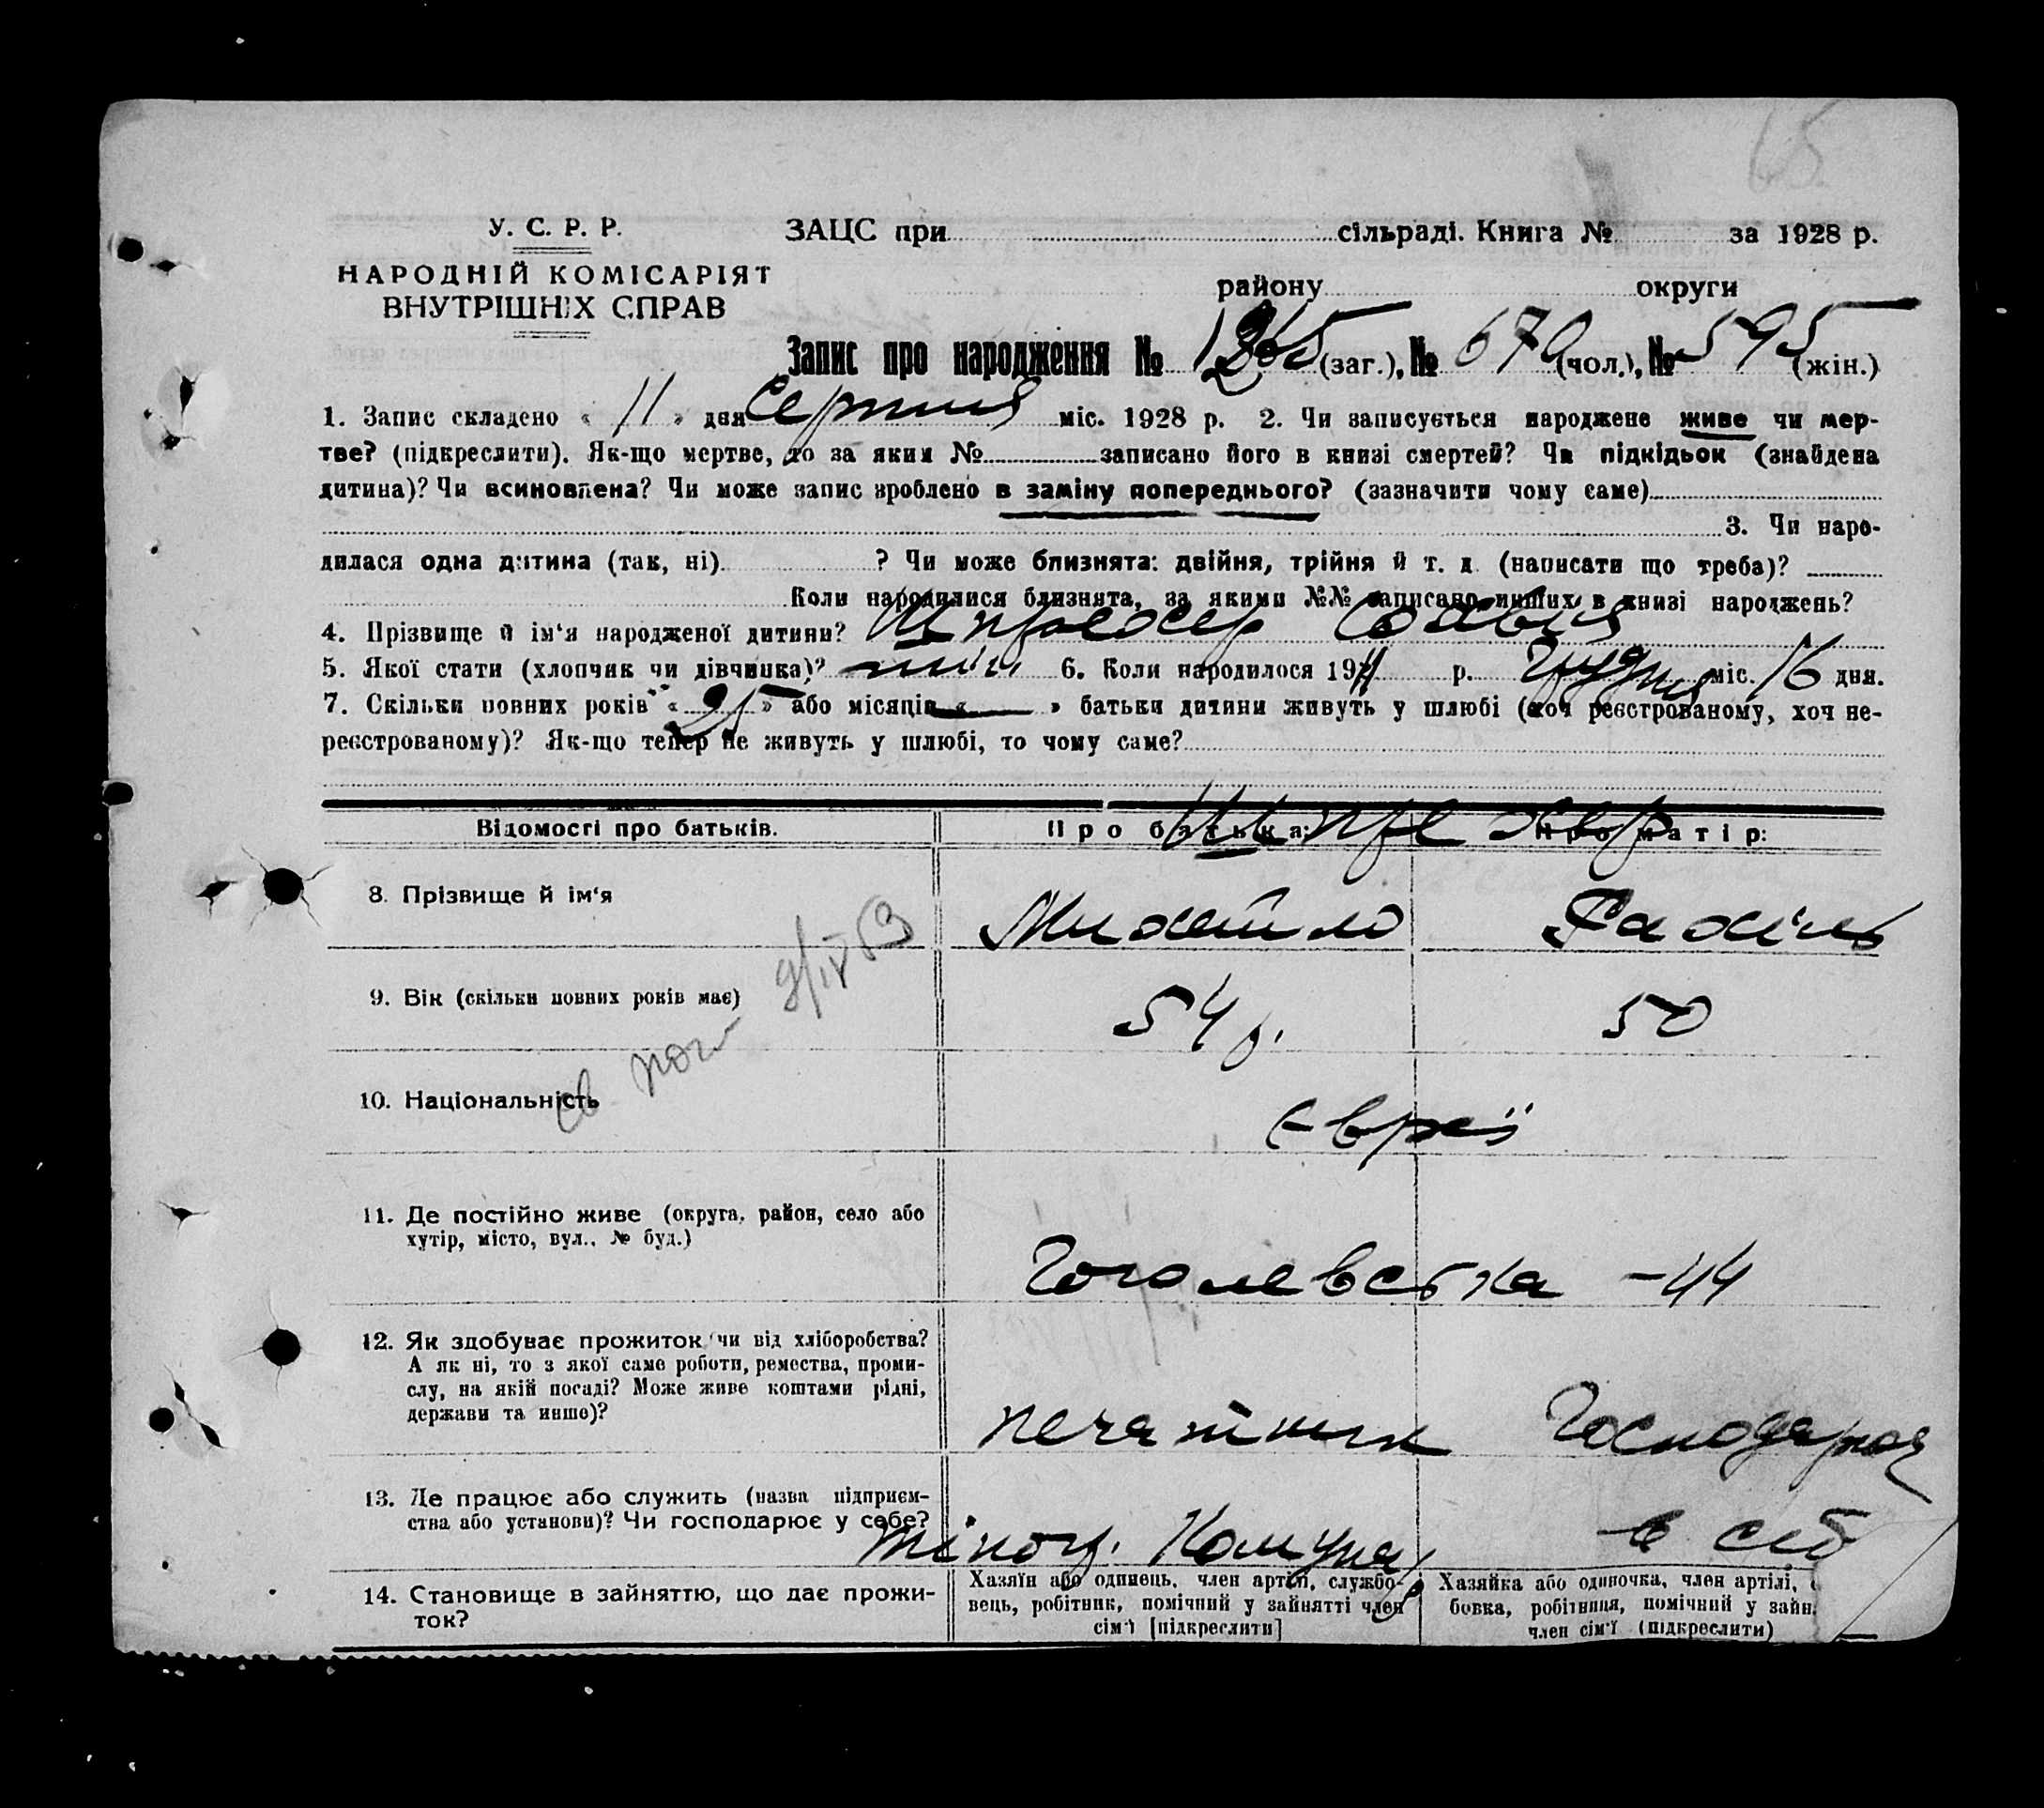 65
У. С. Р. Р.
ЗАЦС при сільраді. Книга № за 1928 р.
НАРОДНІЙ КОМІСАРІЯТ
ВНУТРІШНІХ СПРАВ
району округи
Запис про народження № 1265 (заг.), № 670 (чол.), № 595 (жін.)
1. Запис складено « 11 » дня Серпня міс. 1928 р. 2. Чи записується народжене живе чи мер-
тве? (підкреслити). Як-що мертве, то за яким № записано його в книзі смертей? Чи підкідьок (знайдена
дитина)? Чи всиновлена? Чи може запис зроблено в заміну попереднього? (зазначити чому саме)
3. Чи наро-
дилася одна дитина (так, ні) ? Чи може близнята: двійня, трійня й т. д. (написати що треба)?
Коли народилися близнята, за якими №№ записано инших в книзі народжень?
4. Прізвище й ім‘я народженої дитини?
5. Якої стати (хлопчик чи дівчинка)? 6. Коли народилося 1911 р. Грудня міс. 16 дня.
7. Скільки повних років « 25 » або місяців « — » батьки дитини живуть у шлюбі (хоч реєстрованому, хоч не-
реєстрованому)? Як-що тепер не живуть у шлюбі, то чому саме?
Відомості про батьків. Про батька: Про матір:
8. Прізвище й ім‘я Михайло Рахіль
9. Вік (скільки повних років має) 54 р. 50
10. Національність Євреї
11. Де постійно живе (округа, район, село або
хутір, місто, вул., № буд.)
Гоголевська – 44
12. Як здобуває прожиток чи від хліборобства?
А як ні, то з якої саме роботи, ремества, проми-
слу, на якій посаді? Може живе коштами рідні,
держави та инше)?
печатник Господарює
13. Де працює або служить (назва підприєм-
ства або установи)? Чи господарює у себе?
Комунар в себ
14. Становище в зайняттю, що дає прожи-
ток?
Хазяїн або одинець, член артілі, службо-
вець, робітник, помічний у зайнятті член
сім‘ї [підкреслити]
Хазяйка або одиночка, член артілі,
бовка, робітниця, помічний у зайн.
член сім‘ї (підкреслити)